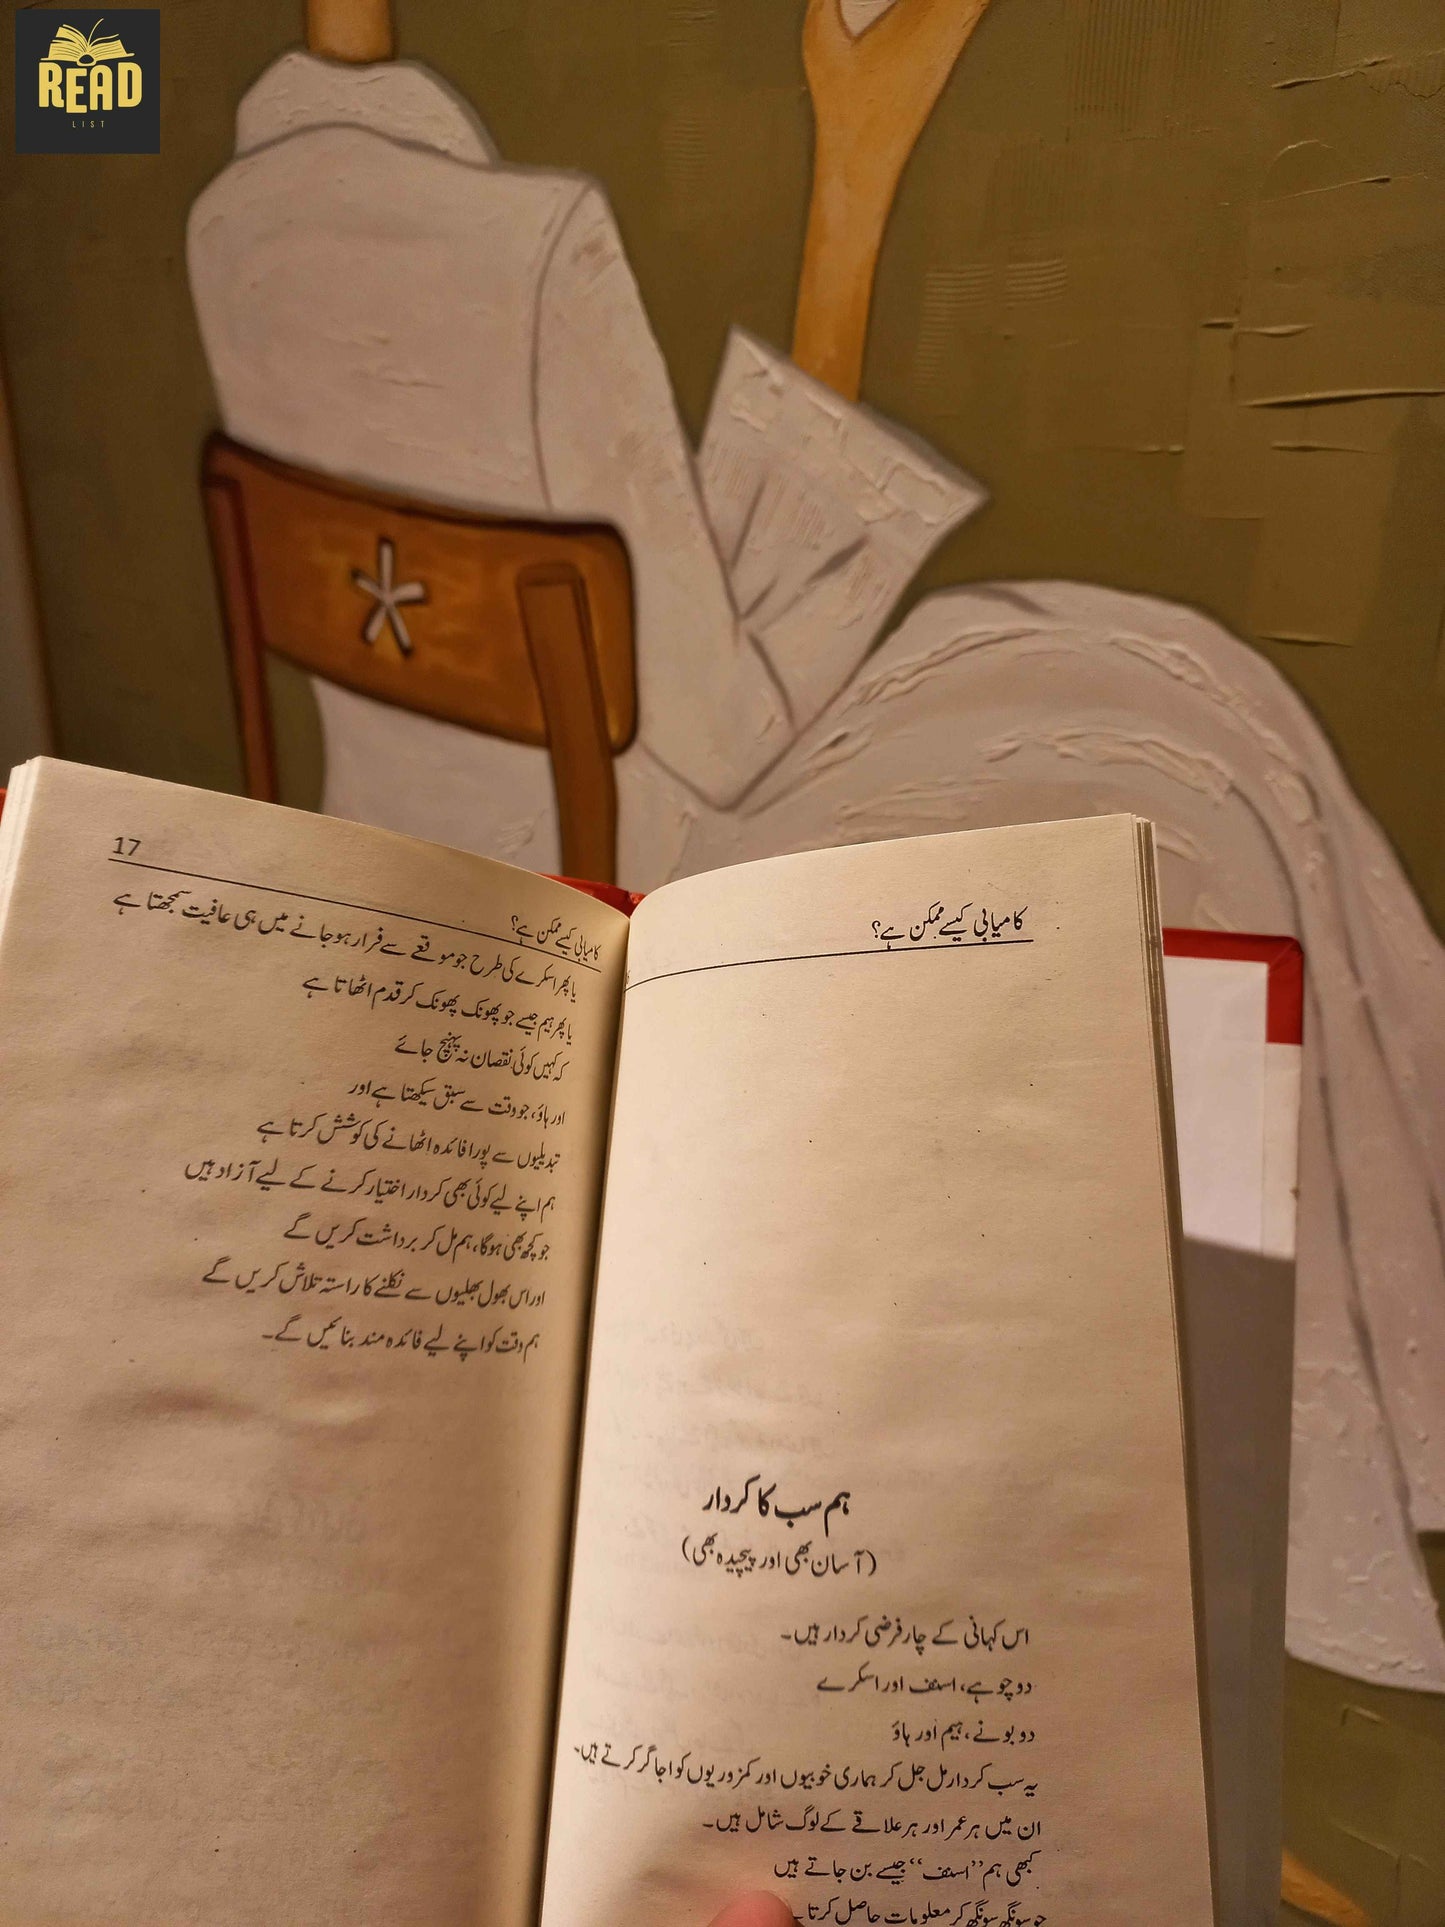 READ
LIST
کامیابی کیسے ممکن ہے؟
ہم سب کا کردار
(آسان بھی اور پیچیدہ بھی)
اس کہانی کے چار فرضی کردار ہیں۔
دو چوہے، اسنف اور اسکرے
دو بونے، ہیم اور ہاؤ
یہ سب کردار مل جل کر ہماری خوبیوں اور کمزوریوں کو اجاگر کرتے ہیں۔
ان میں ہر عمر اور ہر علاقے کے لوگ شامل ہیں۔
کبھی ہم ”اسنف“ جیسے بن جاتے ہیں
جو سونگھ سونگھ کر معلومات حاصل کرتا
17
کامیابی کیسے ممکن ہے؟
یا پھر اسکرے کی طرح جو موقعے سے فرار ہو جانے میں ہی عافیت سمجھتا ہے
یا پھر ہیم جیسے جو پھونک پھونک کر قدم اٹھاتا ہے
کہ کہیں کوئی نقصان نہ پہنچ جائے
اور ہاؤ، جو وقت سے سبق سیکھتا ہے اور
تبدیلیوں سے پورا فائدہ اٹھانے کی کوشش کرتا ہے
ہم اپنے لیے کوئی بھی کردار اختیار کرنے کے لیے آزاد ہیں
جو کچھ بھی ہوگا، ہم مل کر برداشت کریں گے
اور اس بھول بھلیوں سے نکلنے کا راستہ تلاش کریں گے
ہم وقت کو اپنے لیے فائدہ مند بنائیں گے۔